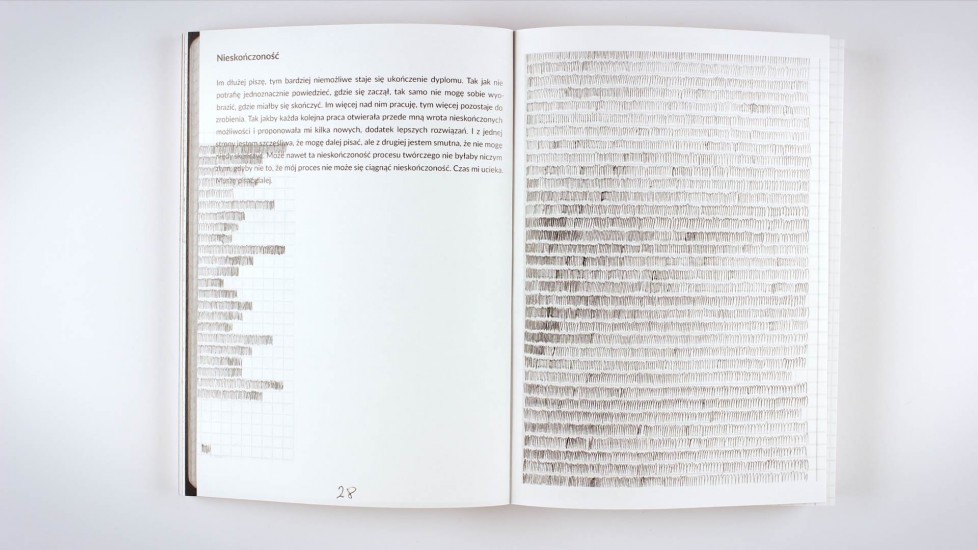 Nieskończoność
Im dłużej piszę, tym bardziej niemożliwe staje się ukończenie dyplomu. Tak jak nie
potrafię jednoznacznie powiedzieć, gdzie się zaczął, tak samo nie mogę sobie wyo-
brazić, gdzie miałby się skończyć. Im więcej nad nim pracuję, tym więcej pozostaje do
zrobienia. Tak jakby każda kolejna praca otwierała przede mną wrota nieskończonych
możliwości i proponowała mi kilka nowych, dodatek lepszych rozwiązań. I z jednej
strony jestem szczęśliwa, że mogę dalej pisać, ale z drugiej jestem smutna, że nie mogę
nigdy skończyć. Może nawet ta nieskończoność procesu twórczego nie byłaby niczym
złym, gdyby nie to, że mój proces nie może się ciągnąć nieskończoność. Czas mi ucieka.
Muszę pisać dalej.
28